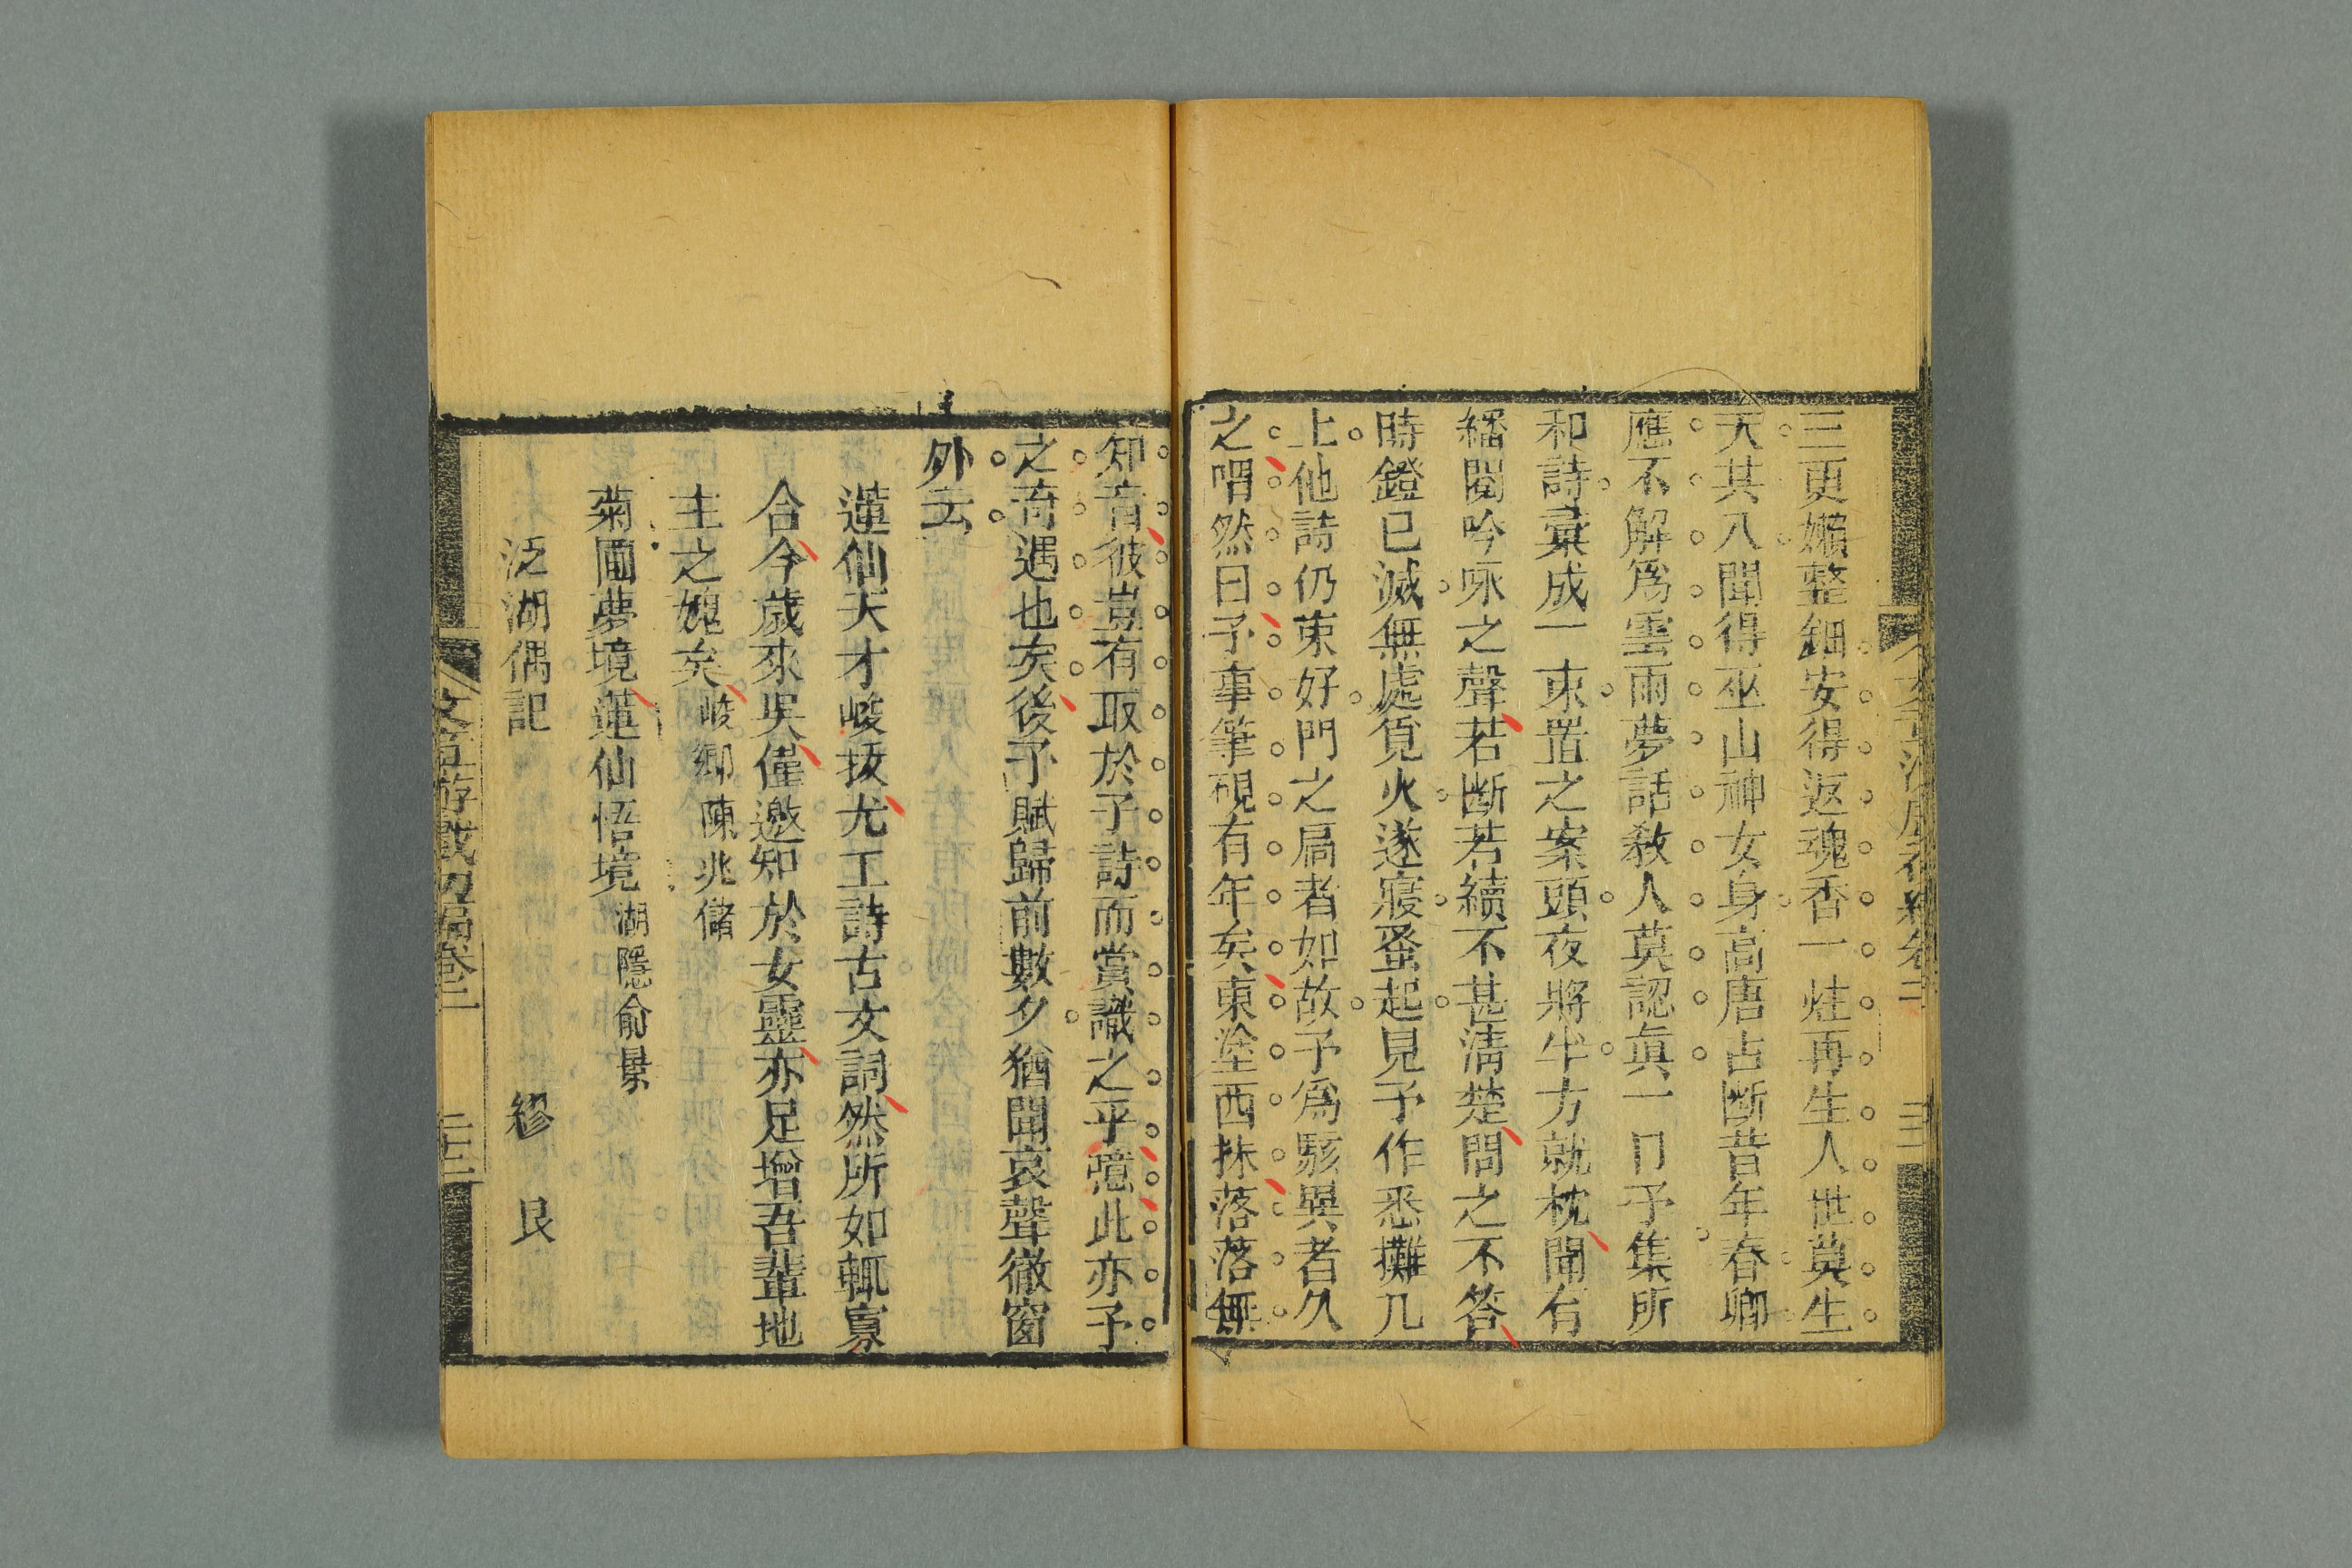 三更嬾整鈿安得返魂香一炷再生人世莫生
天其八聞得巫山神女身高唐占断昔年春卿
應不解爲雲雨夢話教人莫認眞一日予集所
和詩彙成一束置之案頭夜將半方就枕聞有
繙閱吟咏之聲若断若續不甚淸楚問之不答
時鐙已滅無處覓火遂寢蚤起見予作悉攤几
上他詩仍束好門之扃者如故予爲駭異者久
之喟然曰予事筆硯有年矣東塗西抹落落無
知音彼豈有取於予詩而賞識之乎噫此亦予
之奇遇也矣後予賦歸前數夕猶聞哀聲徹窗
外云
蓮仙天才峻拔尤工詩古文詞然所如輒寡
合今歲來吳僅邀知於女靈亦足增吾輩地
主之媿矣峻卿陳兆儲
菊圃夢境蓮仙悟境湖隱俞景
泛湖偶記 繆艮
文章游戲初編卷二 二十二